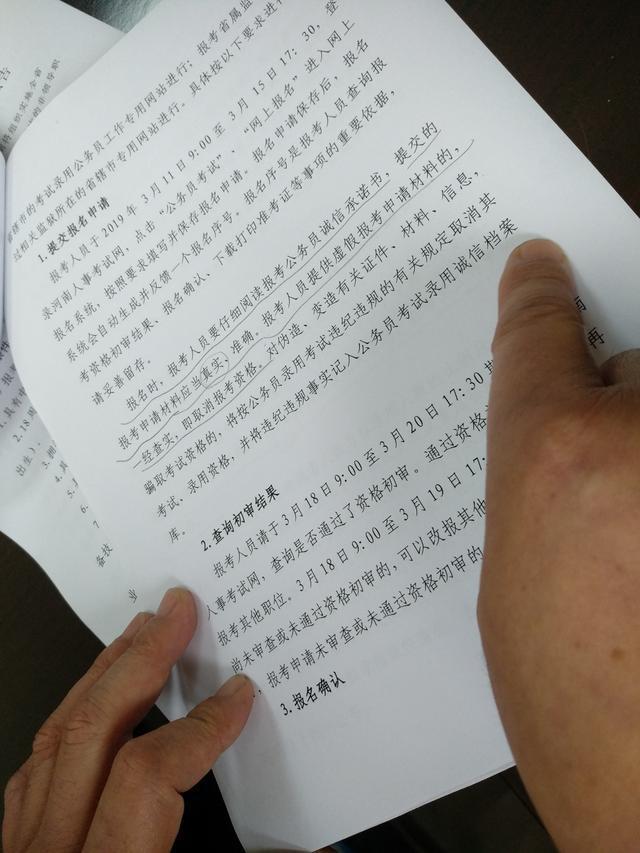 省辖市的考试录用公务员工作专用网站进行；报考省属监
过相关监狱所在的省辖市专用网站进行。具体按以下要求进行
1. 提交报名申请
报考人员于 2019 年 3 月 11 日 9:00 至 3 月 15 日 17:30, 登
录河南人事考试网，点击“公务员考试”、“网上报名”进入网上
报名系统，按照要求填写并保存报名申请。报名申请保存后，报名
系统会自动生成并反馈一个报名序号。报名序号是报考人员查询报
考资格初审结果、报名确认、下载打印准考证等事项的重要依据，
请妥善留存。
报名时，报考人员要仔细阅读报考公务员诚信承诺书，提交的
报考申请材料应当真实、准确。报考人员提供虚假报考申请材料的，
一经查实，即取消报考资格。对伪造、变造有关证件、材料、信息，
骗取考试资格的，将按公务员录用考试违纪违规的有关规定取消其
考试、录用资格，并将违纪违规事实记入公务员考试录用诚信档案
库。
2. 查询初审结果
报考人员请于 3 月 18 日 9:00 至 3 月 20 日 17:30 期
人事考试网，查询是否通过了资格初审。通过资格
报考其他职位。3 月 18 日 9:00 至 3 月 19 日 17:
尚未审查或未通过资格初审的，可以改报其他
，报考申请未审查或未通过资格初审的
3. 报名确认
再